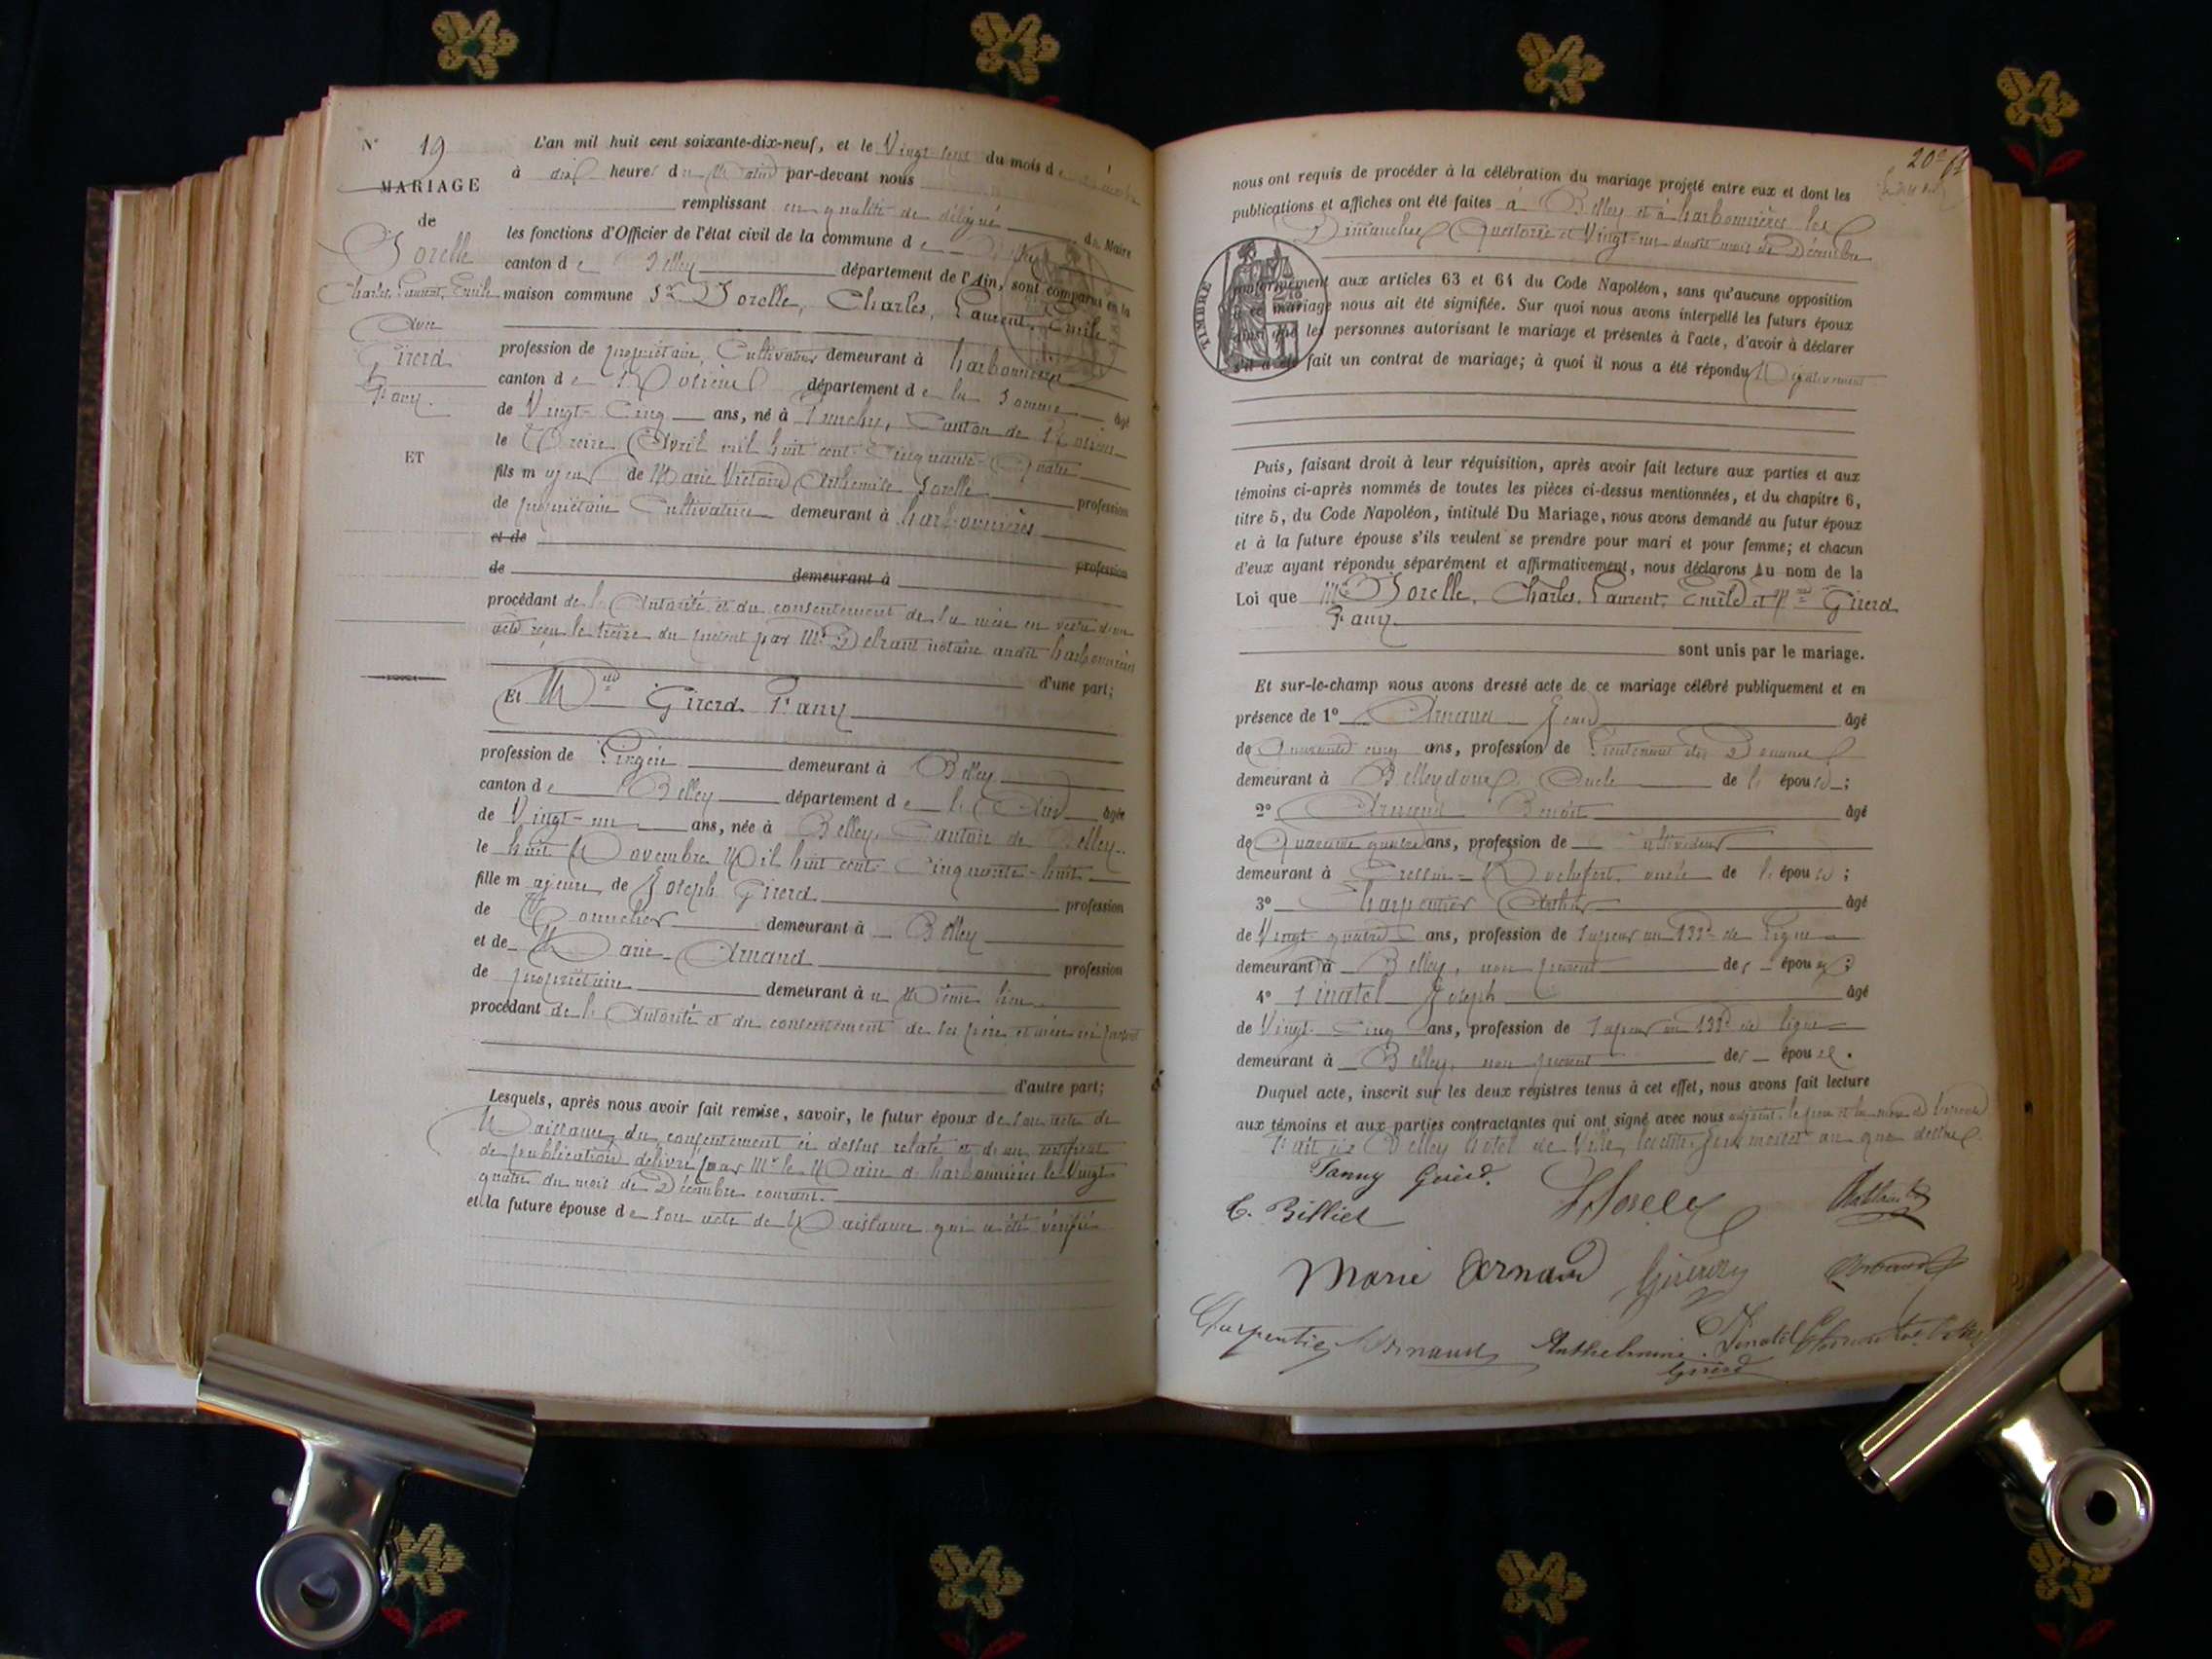 N° 19
MARIAGE
de
Sorelle
Charles, Laurent, Emile
Avec
Girerd
Fany.
ET
L'an mil huit cent soixante-dix-neuf, et le Vingt du mois de
à dix heures du Matin par-devant nous
remplissant en qualité de délégué du Maire
les fonctions d'Officier de l'état civil de la commune de
canton de Belley département de l'Ain, sont comparus en la
maison commune Sr Sorelle, Charles, Laurent, Emile
profession de propriétaire, Cultivateur demeurant à harbonnières
canton de Rosières département de la Somme âgé
de Vingt-Cinq ans, né à Punchy, Canton de
le Treize Avril mil huit cent Cinquante-Quatre
fils majeur de Marie Victoire Arthémise Sorelle profession
de propriétaire Cultivatrice demeurant à harbonnières
et de
de demeurant à profession
procédant de l'Autorité et du consentement de sa mère en vertu d'un
acte reçu le treize du présent par Me Delrant notaire audit harbonnières
d'une part;
Et Melle Girerd Fany
profession de Lingère demeurant à Belley
canton de Belley département de l'Ain âgée
de Vingt-un ans, née à Belley, Canton de Belley
le huit Novembre Mil huit cent Cinquante-huit
fille majeure de Joseph Girerd profession
de Tonnelier demeurant à Belley
et de Marie Arnaud profession
de propriétaire demeurant au Même lieu
procédant de l'Autorité et du consentement de ses père et mère ici présents
d'autre part;
Lesquels, après nous avoir fait remise, savoir, le futur époux de son acte de
Naissance, du consentement ci dessus relaté et d'un certificat
de publication délivré par Mr le Maire d'harbonnières le Vingt
quatre du mois de Décembre courant.
et la future épouse de son acte de Naissance qui a été vérifié
20e
nous ont requis de procéder à la célébration du mariage projeté entre eux et dont les
publications et affiches ont été faites à Belley et à harbonnières les
Dimanches Quatorze et Vingt-un dudit mois de Décembre
TIMBRE
conformément aux articles 63 et 64 du Code Napoléon, sans qu'aucune opposition
à ce mariage nous ait été signifiée. Sur quoi nous avons interpellé les futurs époux
ainsi que les personnes autorisant le mariage et présentes à l'acte, d'avoir à déclarer
s'il a été fait un contrat de mariage; à quoi il nous a été répondu Négativement
Puis, faisant droit à leur réquisition, après avoir fait lecture aux parties et aux
témoins ci-après nommés de toutes les pièces ci-dessus mentionnées, et du chapitre 6,
titre 5, du Code Napoléon, intitulé Du Mariage, nous avons demandé au futur époux
et à la future épouse s'ils veulent se prendre pour mari et pour femme; et chacun
d'eux ayant répondu séparément et affirmativement, nous déclarons Au nom de la
Loi que Mr Sorelle, Charles, Laurent, Emile et Melle Girerd
Fany
sont unis par le mariage.
Et sur-le-champ nous avons dressé acte de ce mariage célébré publiquement et en
présence de 1° Arnaud Jean âgé
de Quarante cinq ans, profession de Lieutenant des Douanes
demeurant à Belleydoux, Oncle de l'épouse;
2° Arnaud Benoit âgé
de Quarante quatre ans, profession de Cultivateur
demeurant à Cressin-Rochefort, oncle de l'épouse;
3° Charpentier Arthur âgé
de Vingt-quatre ans, profession de Sapeur au 133e de Ligne
demeurant à Belley, non parent des époux;
4° Sinatel Joseph âgé
de Vingt-Cinq ans, profession de Sapeur au 133e de ligne
demeurant à Belley, non parent des époux.
Duquel acte, inscrit sur les deux registres tenus à cet effet, nous avons fait lecture
aux témoins et aux parties contractantes qui ont signé avec nous le père et la mère de l'épouse
Fait à Belley hôtel de Ville, les dits jour, mois et an que dessus.
Fanny Girerd.
C. Billiet
Sorelle
Marie Arnaud
Charpentier Arnaud Anthelmine Girerd Sinatel